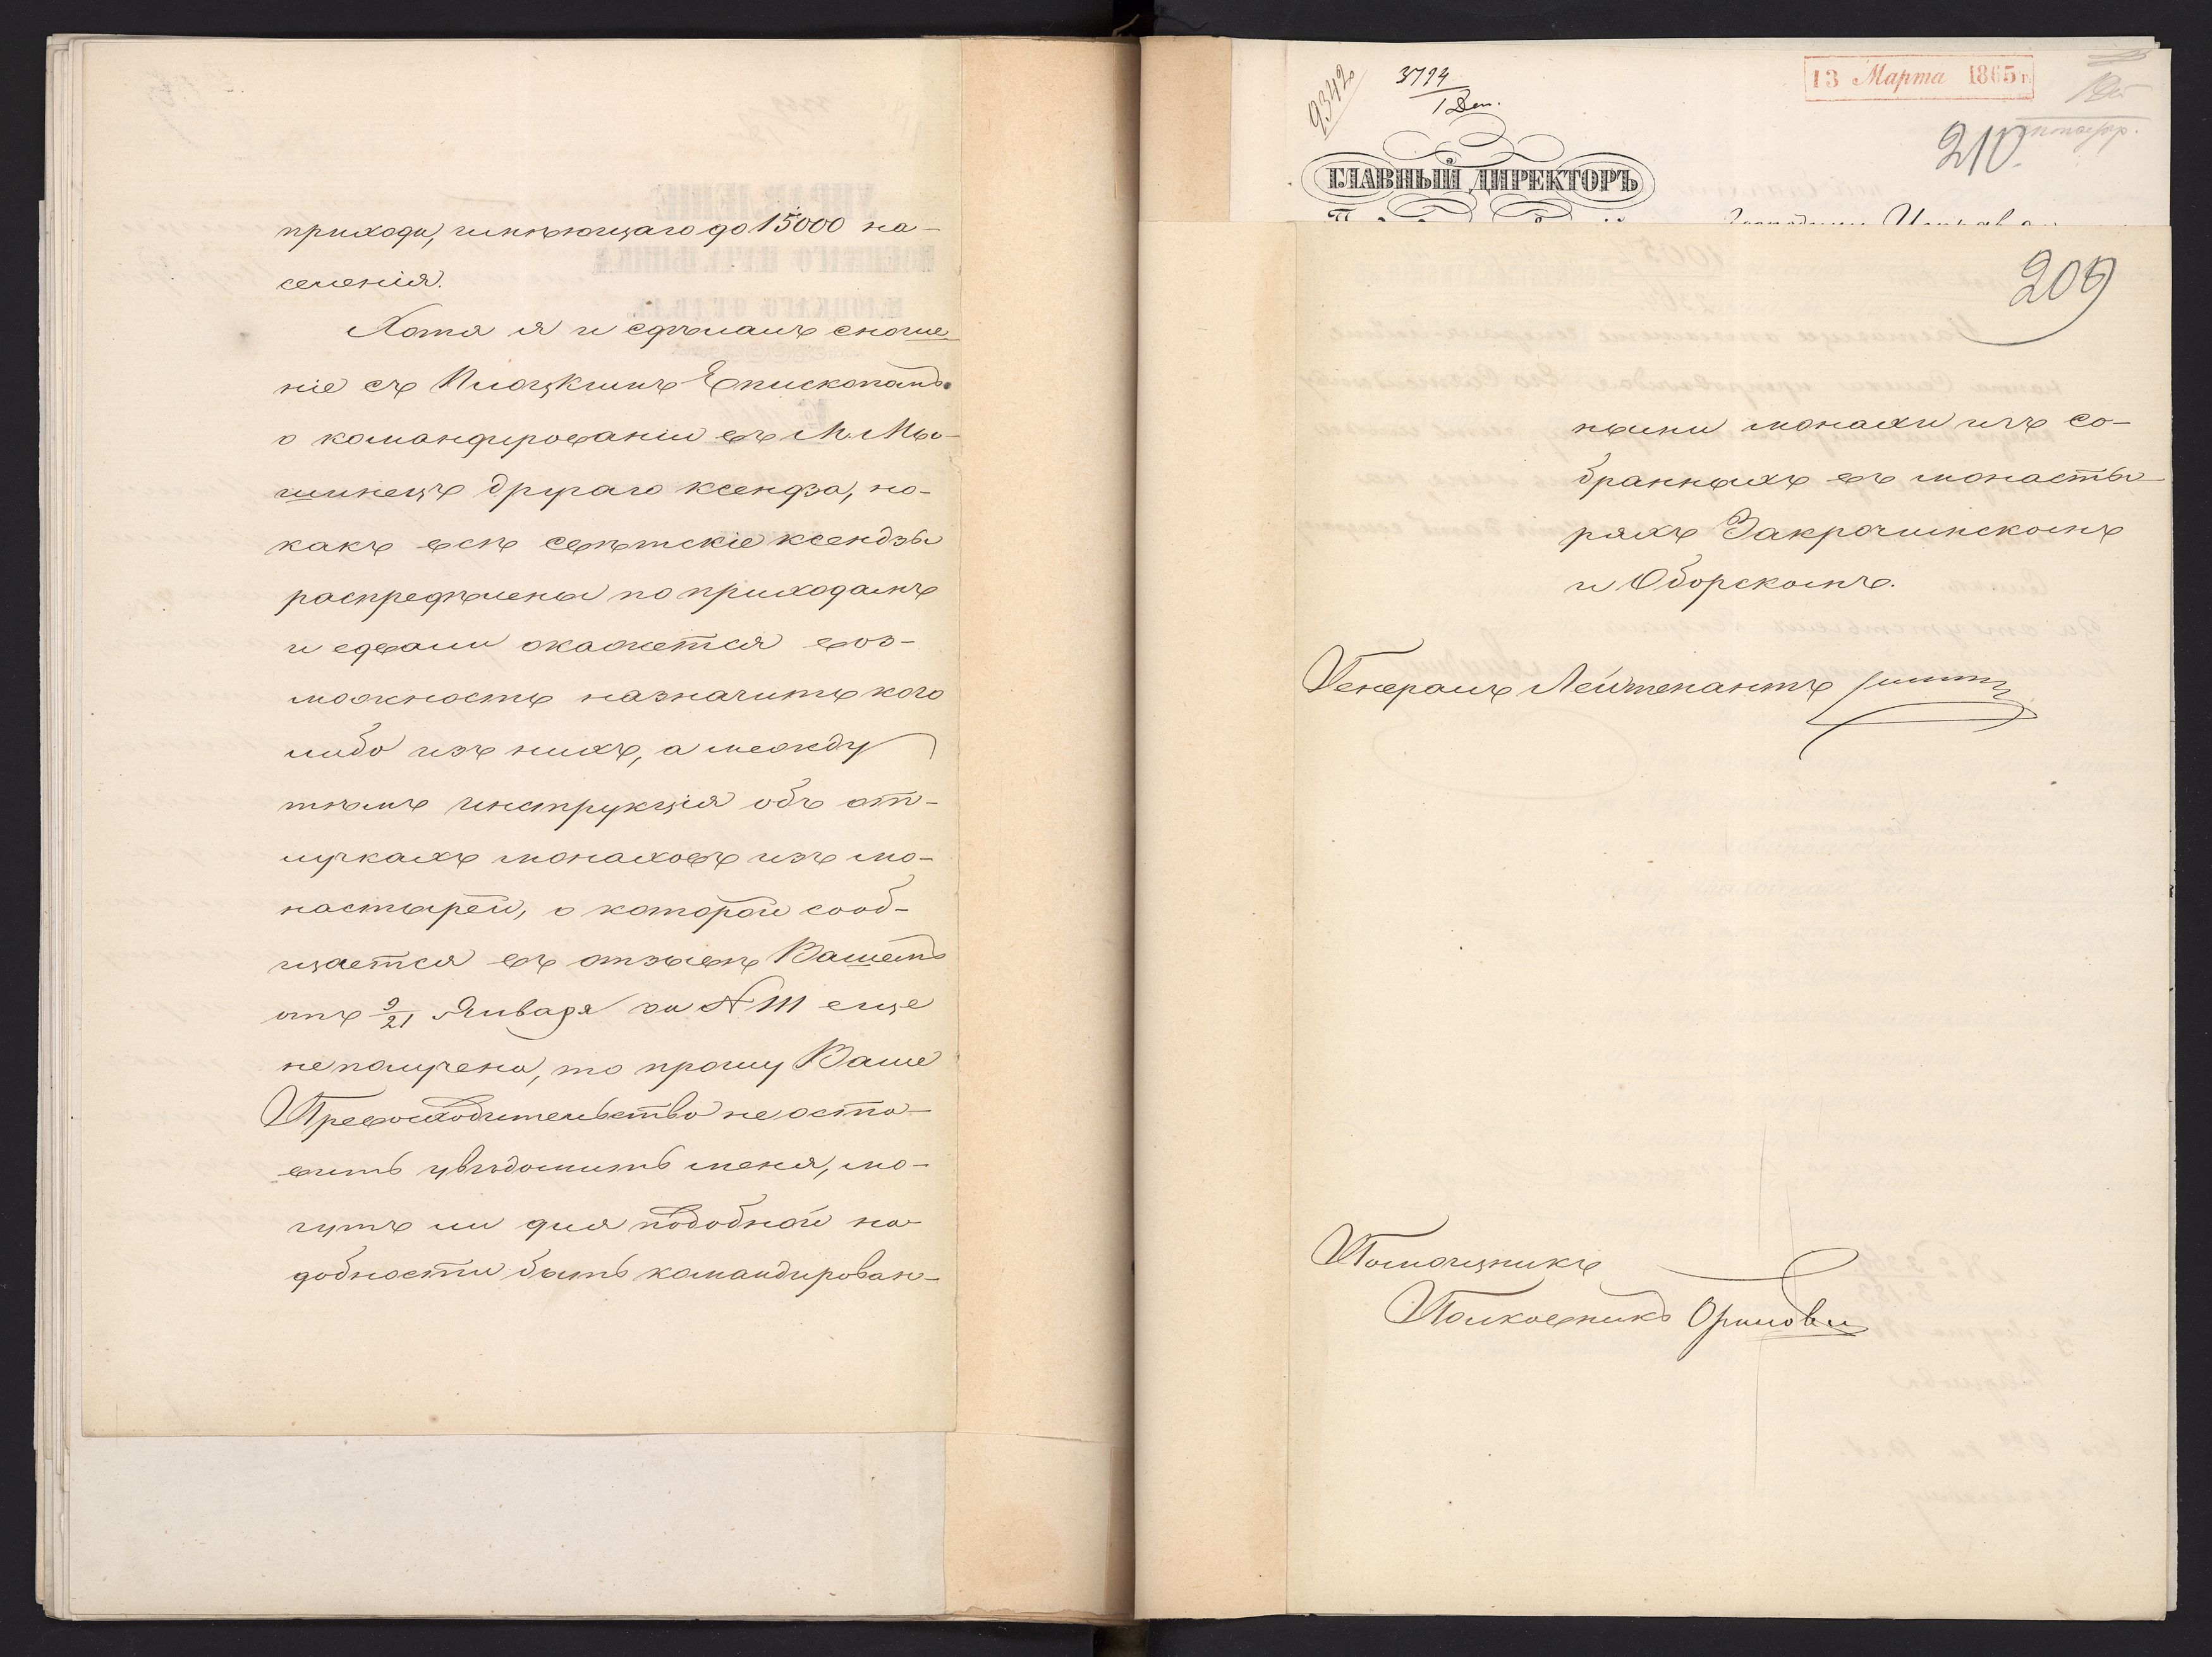 прихода, имѣющаго до 15000 на-
селенія.
Хотя я и сдѣлалъ сноше-
ніе съ Плоцкимъ Епископомъ
о командированіи въ м. Мы-
шинецъ другаго ксендза, но
какъ всѣ свѣтскіе ксендзы
распредѣлены по приходамъ
и едвали окажется воз-
можность назначить кого
либо изъ нихъ, а между
тѣмъ инструкція объ от-
лучкахъ монаховъ изъ мо-
настырей, о которой сооб-
щается въ отзывѣ Вашемъ
отъ 9/21 Января за № 111 еще
не получена, то прошу Ваше
Превосходительство не оста-
вить увѣдомить меня, мо-
гутъ ли для подобной на-
добности быть командирован-
9342
3794
1 Деп.
13 Марта 1865 г.
210
ГЛАВНЫЙ ДИРЕКТОРЪ
209
ными монахи изъ со-
бранныхъ въ монасты-
ряхъ Закрочимскомъ
и Оборскомъ.
Генералъ Лейтенантъ
Помощникъ
Полковникъ